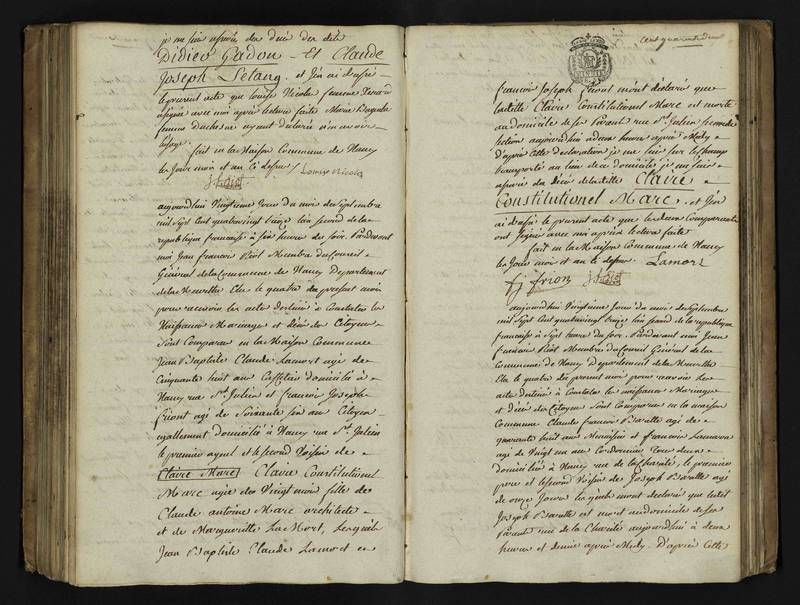 je me suis assuré du décé des dits
Didier Gadon et Claude
Joseph Letang, et j'en ai dressé
le present acte que Louise Nicolas femme
signé avec moi après lecture faite Marie
femme Duchesne ayant déclarée n'en avoir
l'usage.
fait en la Maison Commune de Nancy
les Jour mois et an ci dessus / Louise Nicolas
aujourdhui Vingtieme Jour du mois de Septembre
mil Sept Cent quatrevingt treize l'an second de la
république française à six heures du soir. Pardevant
moi Jean François Membre du Conseil
Général de la Commune de Nancy Departement
de la Meurthe Elu le quatre du present mois
pour recevoir les actes destinés à Constater les
Naissances Mariages et décés des Citoyens
Sont Comparus en la Maison Commune
Jean Baptiste Claude Lamort agé de
Cinquante huit ans domicilié à
Nancy rue St Julien et françois Joseph
friont agé de Soixante six ans Citoyen
egallement domicilié à Nancy rue St Julien
le premier ayeul et le second Voisin de
Claire Marc Claire Constitutionel
Marc agée de Vingt mois fille de
Claude antoine Marc architecte
et de Margueritte La Mort, Lesquels
Jean Baptiste Claude Lamort et
cent quarante deux
françois Joseph friont m'ont déclaré que
ladite Claire Constitutionel Marc est morte
au domicile de ses Parents rue St Julien seconde
section aujourdhui a deux heures après Midy
d'après cette déclaration je me suis sur le champ
transporté au lieu de ce domicile je me suis
assuré du Décé de ladite Claire
Constitutionel Marc, et j'en
ai dressé le present acte que les deux Comparants
ont signé avec moi après lecture faite
fait en la Maison Commune de Nancy
les Jour mois et an ci dessus. Lamort
fj frion
aujourdhui Vingtieme Jour du mois de Septembre
mil Sept Cent quatrevingt treize l'an second de la république
française à Sept heures du soir. Pardevant moi Jean
François Membre du Conseil Général de la
Commune de Nancy Departement de la Meurthe
Elu le quatre du present mois pour recevoir les
actes destinés à Constater les naissances Mariages
et décés des Citoyens Sont Comparus en la maison
Commune Claude françois Baratte agé de
quarante huit ans Menuisier et françois
agé de Vingt un ans Cordonnier tous deux
domiciliés à Nancy rue de la Charité, le premier
pere et le second Voisin de Joseph Baratte agé
de onze Jours lesquels m'ont déclaré que ledit
Joseph Baratte est mort au domicile de ses
Parents rue de la Charité aujourdhui à deux
heures et demie après Midy. D'après Cette